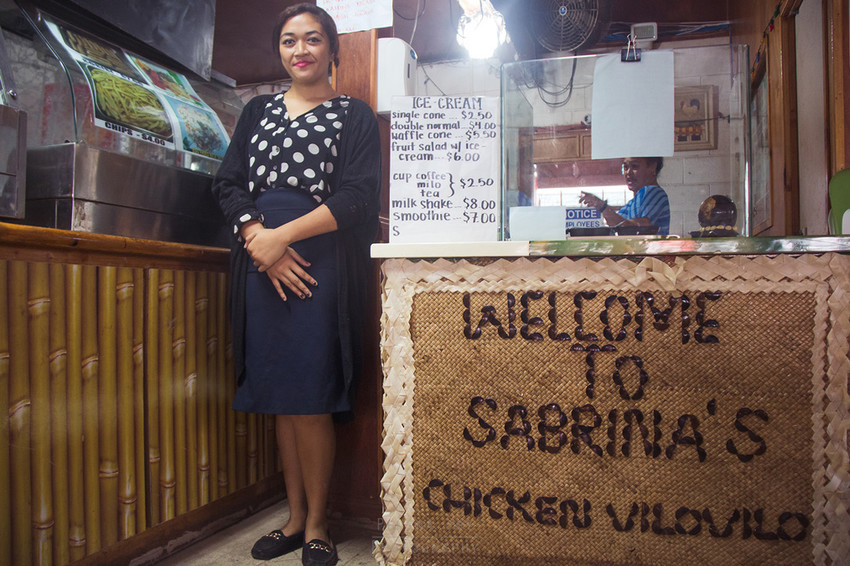 CHIPS - $4.00
ICE-CREAM
single cone ... $2.50
double normal ... $4.00
waffle cone ... $5.50
fruit salad w/ ice-
cream ... $6.00
cup coffee
milo } $2.50
tea
milk shake ... $8.00
smoothie ... $7.00
S
NOTICE
EMPLOYEES
WELCOME
TO
SABRINA'S
CHICKEN VILOVILO